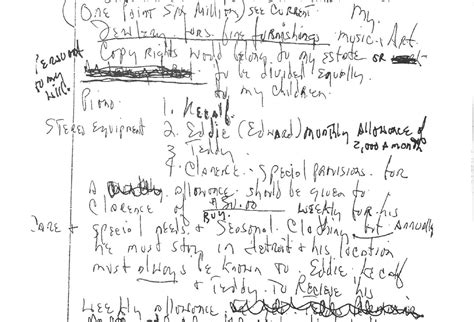 (One Point Six Million) see current my.
Jewelry furs fine furnishings music. Art
Copy Rights would belong to my estate or
Pursuant to my will.
to be divided equally.
to my children.
Piano 1. Kecalf
Stereo Equipment 2. Eddie (Edward) monthly allowance of 2,000 a month
3 Teddy
4. Clarence. Special provisions for
A allowance should be given to
Clarence of weekly for his
Buy.
Care & special needs & seasonal clothing but annually
he must stay in Detroit & his location
must always be known to. Eddie Kecalf
& Teddy. To Recieve his
weekly allowance.